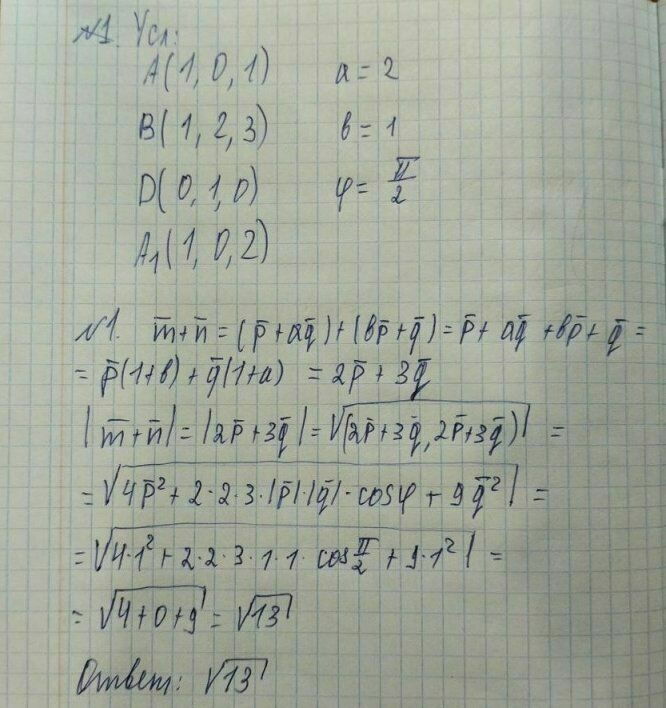 №1. Усл:
A(1, 0, 1) a = 2
B(1, 2, 3) b = 1
D(0, 1, 0) φ = π/2
A₁(1, 0, 2)
№1. m̅+n̅ = (p̅+aq̅)+(bp̅+q̅) = p̅ + aq̅ + bp̅ + q̅ =
= p̅(1+b) + q̅(1+a) = 2p̅ + 3q̅
|m̅+n̅| = |2p̅+3q̅| = √(2p̅+3q̅, 2p̅+3q̅) =
= √4p̅² + 2·2·3·|p̅|·|q̅|·cosφ + 9q̅² =
= √4·1² + 2·2·3·1·1·cos π/2 + 9·1² =
= √4+0+9 = √13
Ответ: √13